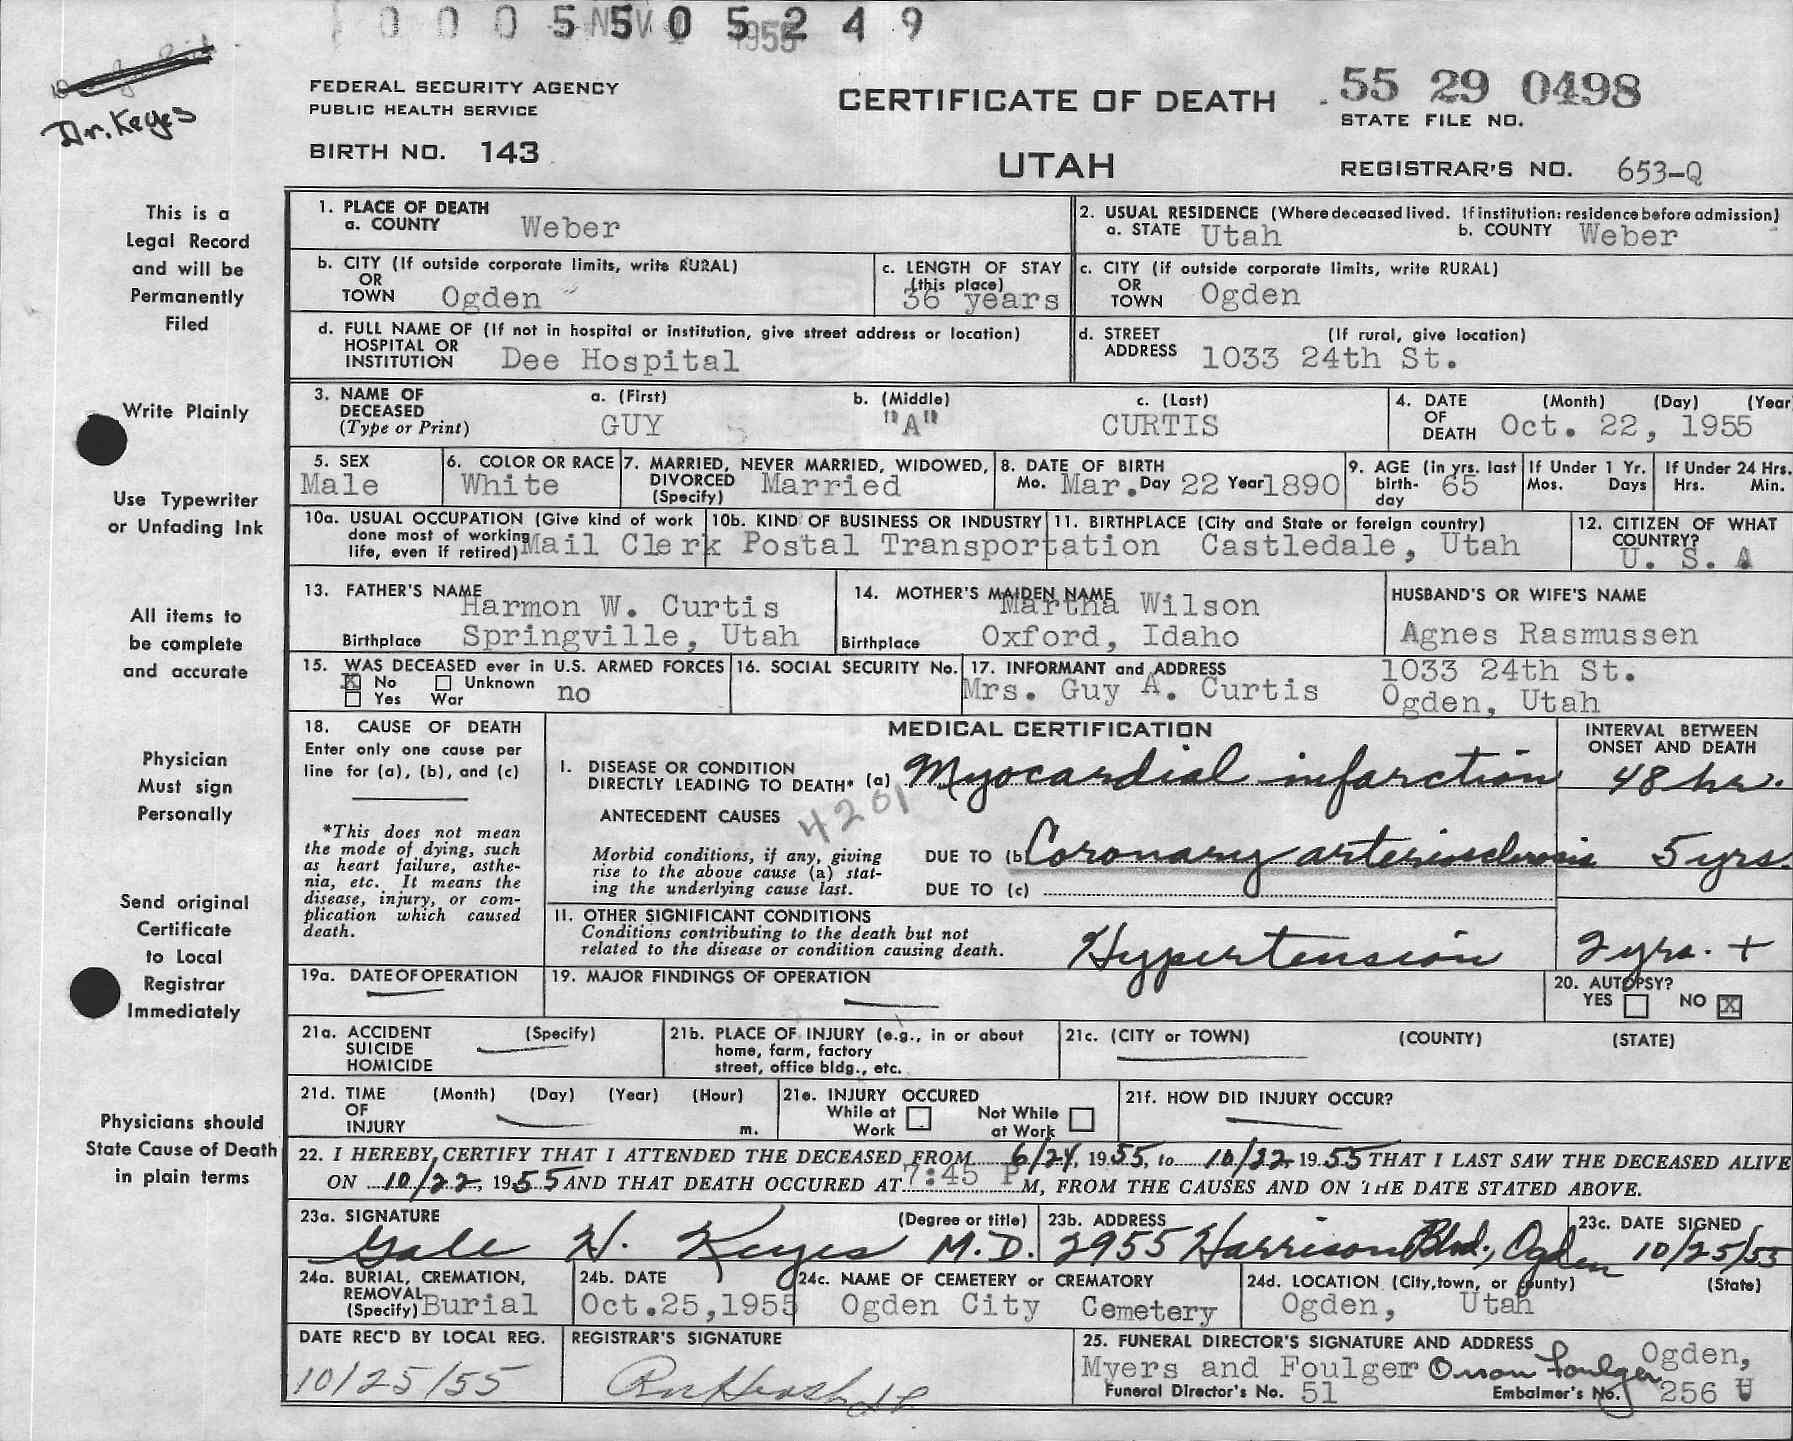 0 0 0 5 5 0 5 2 4 9
NOV 1955
Dr. Keyes
FEDERAL SECURITY AGENCY
PUBLIC HEALTH SERVICE
BIRTH NO. 143
CERTIFICATE OF DEATH
UTAH
55 29 0498
STATE FILE NO.
REGISTRAR'S NO. 653-Q
This is a
Legal Record
and will be
Permanently
Filed
Write Plainly
Use Typewriter
or Unfading Ink
All items to
be complete
and accurate
Physician
Must sign
Personally
Send original
Certificate
to Local
Registrar
Immediately
Physicians should
State Cause of Death
in plain terms
1. PLACE OF DEATH
a. COUNTY Weber
2. USUAL RESIDENCE (Where deceased lived. If institution: residence before admission)
a. STATE Utah b. COUNTY Weber
b. CITY (If outside corporate limits, write RURAL)
OR
TOWN Ogden
c. LENGTH OF STAY
(this place)
36 years
c. CITY (if outside corporate limits, write RURAL)
OR
TOWN Ogden
d. FULL NAME OF (If not in hospital or institution, give street address or location)
HOSPITAL OR
INSTITUTION Dee Hospital
d. STREET (If rural, give location)
ADDRESS 1033 24th St.
3. NAME OF DECEASED
(Type or Print)
a. (First) b. (Middle) c. (Last)
GUY "A" CURTIS
4. DATE OF DEATH (Month) (Day) (Year
Oct. 22, 1955
5. SEX
Male
6. COLOR OR RACE
White
7. MARRIED, NEVER MARRIED, WIDOWED,
DIVORCED
(Specify) Married
8. DATE OF BIRTH
Mo. Mar. Day 22 Year 1890
9. AGE (in yrs. last
birth-
day 65
If Under 1 Yr.
Mos. Days
If Under 24 Hrs.
Hrs. Min.
10a. USUAL OCCUPATION (Give kind of work
done most of working
life, even if retired) Mail Clerk
10b. KIND OF BUSINESS OR INDUSTRY
Postal Transportation
11. BIRTHPLACE (City and State or foreign country)
Castledale, Utah
12. CITIZEN OF WHAT
COUNTRY?
U. S. A
13. FATHER'S NAME
Harmon W. Curtis
Birthplace Springville, Utah
14. MOTHER'S MAIDEN NAME
Martha Wilson
Birthplace Oxford, Idaho
HUSBAND'S OR WIFE'S NAME
Agnes Rasmussen
15. WAS DECEASED ever in U.S. ARMED FORCES
X No Unknown
Yes War no
16. SOCIAL SECURITY No.
17. INFORMANT and ADDRESS
Mrs. Guy A. Curtis
1033 24th St.
Ogden, Utah
18. CAUSE OF DEATH
Enter only one cause per
line for (a), (b), and (c)
*This does not mean
the mode of dying, such
as heart failure, asthe-
nia, etc. It means the
disease, injury, or com-
plication which caused
death.
MEDICAL CERTIFICATION
INTERVAL BETWEEN
ONSET AND DEATH
I. DISEASE OR CONDITION
DIRECTLY LEADING TO DEATH* (a) Myocardial infarction 48 hr.
ANTECEDENT CAUSES
4201
Morbid conditions, if any, giving
rise to the above cause (a) stat-
ing the underlying cause last.
DUE TO (b) Coronary arteriosclerosis 5 yrs.
DUE TO (c)
II. OTHER SIGNIFICANT CONDITIONS
Conditions contributing to the death but not
related to the disease or condition causing death.
Hypertension 2 yrs. +
19a. DATE OF OPERATION
19. MAJOR FINDINGS OF OPERATION
20. AUTOPSY?
YES NO X
21a. ACCIDENT (Specify)
SUICIDE
HOMICIDE
21b. PLACE OF INJURY (e.g., in or about
home, farm, factory
street, office bldg., etc.
21c. (CITY or TOWN) (COUNTY) (STATE)
21d. TIME (Month) (Day) (Year) (Hour)
OF
INJURY m.
21e. INJURY OCCURED
While at Work Not While at Work
21f. HOW DID INJURY OCCUR?
22. I HEREBY CERTIFY THAT I ATTENDED THE DECEASED FROM 6/24, 1955, to 10/22 1955 THAT I LAST SAW THE DECEASED ALIVE
ON 10/22, 1955 AND THAT DEATH OCCURED AT 7:45 P M, FROM THE CAUSES AND ON THE DATE STATED ABOVE.
23a. SIGNATURE (Degree or title)
Gale H. Keyes M.D.
23b. ADDRESS
2955 Harrison Blvd., Ogden
23c. DATE SIGNED
10/25/55
24a. BURIAL, CREMATION,
REMOVAL
(Specify) Burial
24b. DATE
Oct. 25, 1955
24c. NAME OF CEMETERY or CREMATORY
Ogden City Cemetery
24d. LOCATION (City, town, or county) (State)
Ogden, Utah
DATE REC'D BY LOCAL REG.
10/25/55
REGISTRAR'S SIGNATURE
25. FUNERAL DIRECTOR'S SIGNATURE AND ADDRESS
Myers and Foulger Orson Foulger Ogden,
Funeral Director's No. 51 Embalmer's No. 256 U